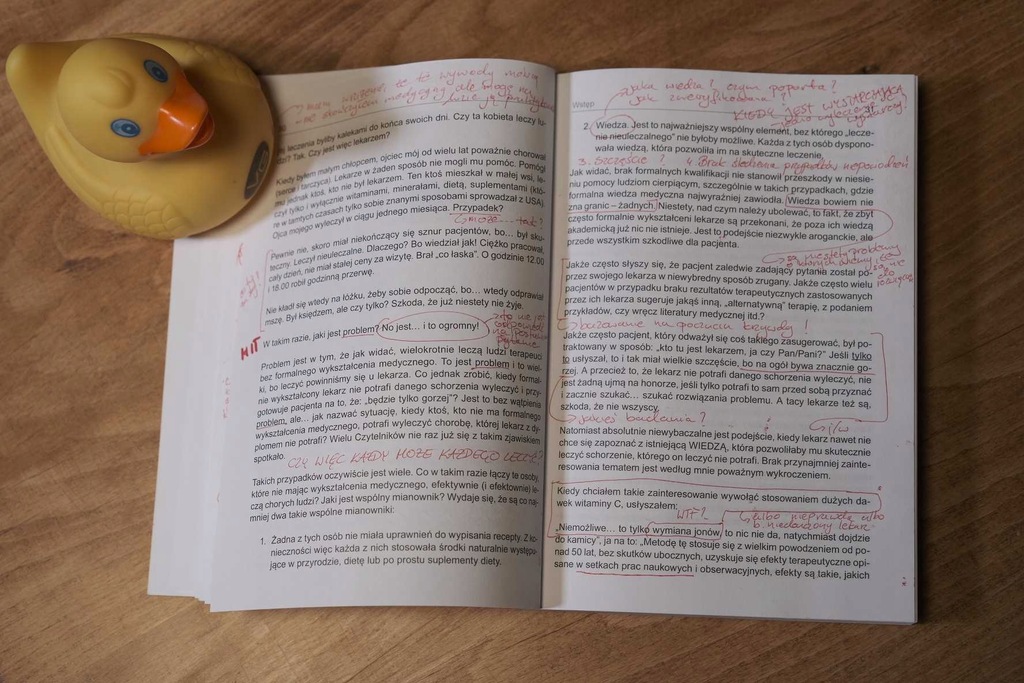 leczenia byliby kalekami do końca swoich dni. Czy ta kobieta leczy lu-
dzi? Tak. Czy jest więc lekarzem?
Kiedy byłem małym chłopcem, ojciec mój od wielu lat poważnie chorował
(serce i tarczyca). Lekarze w żaden sposób nie mogli mu pomóc. Pomógł
mu jednak ktoś, kto nie był lekarzem. Ten ktoś mieszkał w małej wsi, le-
czył tylko i wyłącznie witaminami, minerałami, dietą, suplementami (któ-
re w tamtych czasach tylko sobie znanymi sposobami sprowadzał z USA).
Ojca mojego wyleczył w ciągu jednego miesiąca. Przypadek?
może... tak?
Pewnie nie, skoro miał niekończący się sznur pacjentów, bo... był sku-
teczny. Leczył nieuleczalne. Dlaczego? Bo wiedział jak! Ciężko pracował,
cały dzień, nie miał stałej ceny za wizytę. Brał „co łaska”. O godzinie 12.00
i 18.00 robił godzinną przerwę.
Nie kładł się wtedy na łóżku, żeby sobie odpocząć, bo... wtedy odprawiał
mszę. Był księdzem, ale czy tylko? Szkoda, że już niestety nie żyje.
HIT
W takim razie, jaki jest problem? No jest... i to ogromny!
Problem jest w tym, że jak widać, wielokrotnie leczą ludzi terapeuci
bez formalnego wykształcenia medycznego. To jest problem i to wiel-
ki, bo leczyć powinniśmy się u lekarza. Co jednak zrobić, kiedy formal-
nie wykształcony lekarz nie potrafi danego schorzenia wyleczyć i przy-
gotowuje pacjenta na to, że: „będzie tylko gorzej”? Jest to bez wątpienia
problem, ale... jak nazwać sytuację, kiedy ktoś, kto nie ma formalnego
wykształcenia medycznego, potrafi wyleczyć chorobę, której lekarz z dy-
plomem nie potrafi? Wielu Czytelników nie raz już się z takim zjawiskiem
spotkało.
CZY WIĘC KAŻDY MOŻE KAŻDEGO LECZYĆ?
Takich przypadków oczywiście jest wiele. Co w takim razie łączy te osoby,
które nie mając wykształcenia medycznego, efektywnie (i efektownie) le-
czą chorych ludzi? Jaki jest wspólny mianownik? Wydaje się, że są co naj-
mniej dwa takie wspólne mianowniki:
1. Żadna z tych osób nie miała uprawnień do wypisania recepty. Z ko-
nieczności więc każda z nich stosowała środki naturalnie występu-
jące w przyrodzie, dietę lub po prostu suplementy diety.
jaka wiedza? czym poparta?
jak zweryfikowana?
Wstęp
KIEDY JEST WYSTARCZAJĄCA
2. Wiedza. Jest to najważniejszy wspólny element, bez którego „lecze-
nie nieuleczalnego” nie byłoby możliwe. Każda z tych osób dyspono-
wała wiedzą, która pozwoliła im na skuteczne leczenie.
3. Szczęście? 4. Brak śledzenia przypadków niepowodzeń
Jak widać, brak formalnych kwalifikacji nie stanowił przeszkody w niesie-
niu pomocy ludziom cierpiącym, szczególnie w takich przypadkach, gdzie
formalna wiedza medyczna najwyraźniej zawiodła. Wiedza bowiem nie
zna granic – żadnych. Niestety, nad czym należy ubolewać, to fakt, że zbyt
często formalnie wykształceni lekarze są przekonani, że poza ich wiedzą
akademicką już nic nie istnieje. Jest to podejście niezwykle aroganckie, ale
przede wszystkim szkodliwe dla pacjenta.
Jakże często słyszy się, że pacjent zaledwie zadający pytania został po-
przez swojego lekarza w niewybredny sposób zrugany. Jakże często wielu
pacjentów w przypadku braku rezultatów terapeutycznych zastosowanych
przez ich lekarza sugeruje jakąś inną, „alternatywną” terapię, z podaniem
przykładów, czy wręcz literatury medycznej itd.?
bazowanie na poczuciu krzywdy!
Jakże często pacjent, który odważył się coś takiego zasugerować, był po-
traktowany w sposób: „kto tu jest lekarzem, ja czy Pan/Pani?” Jeśli tylko
to usłyszał, to i tak miał wielkie szczęście, bo na ogół bywa znacznie go-
rzej. A przecież to, że lekarz nie potrafi danego schorzenia wyleczyć, nie
jest żadną ujmą na honorze, jeśli tylko potrafi to sam przed sobą przyznać
i zacznie szukać... szukać rozwiązania problemu. A tacy lekarze też są,
szkoda, że nie wszyscy.
jakieś badania?
j/w
Natomiast absolutnie niewybaczalne jest podejście, kiedy lekarz nawet nie
chce się zapoznać z istniejącą WIEDZĄ, która pozwoliłaby mu skutecznie
leczyć schorzenie, którego on leczyć nie potrafi. Brak przynajmniej zainte-
resowania tematem jest według mnie poważnym wykroczeniem.
Kiedy chciałem takie zainteresowanie wywołać stosowaniem dużych da-
wek witaminy C, usłyszałem:
WTF?
albo nieprawda albo
b. niedouczony lekarz
„Niemożliwe... to tylko wymiana jonów, to nic nie da, natychmiast dojdzie
do kamicy”, ja na to: „Metodę tę stosuje się z wielkim powodzeniem od po-
nad 50 lat, bez skutków ubocznych, uzyskuje się efekty terapeutyczne opi-
sane w setkach prac naukowych i obserwacyjnych, efekty są takie, jakich